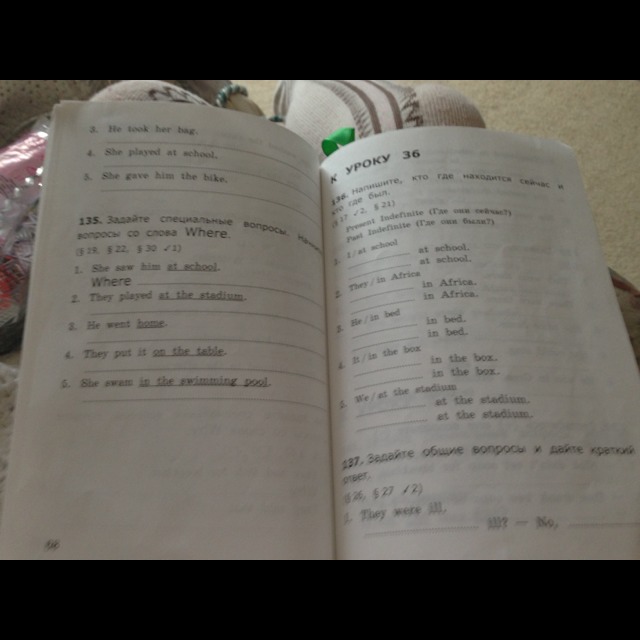 3. He took her bag.
4. She played at school.
5. She gave him the bike.
135. Задайте специальные вопросы.
вопросы со слова Where.
(§ 19, § 22, § 30 ✓1)
1. She saw him at school.
Where
2. They played at the stadium.
3. He went home.
4. They put it on the table.
5. She swam in the swimming pool.
66
К УРОКУ 36
136. Напишите, кто где находится сейчас и
кто где был.
(§ 17 ✓2, § 21)
Present Indefinite (Где они сейчас?)
Past Indefinite (Где они были?)
1. I / at school
at school.
at school.
2. They / in Africa
in Africa.
in Africa.
3. He / in bed
in bed.
in bed.
4. It / in the box
in the box.
in the box.
5. We / at the stadium
at the stadium.
at the stadium.
137. Задайте общие вопросы и дайте краткий
ответ.
(§ 26, § 27 ✓2)
1. They were ill.
ill? — No,